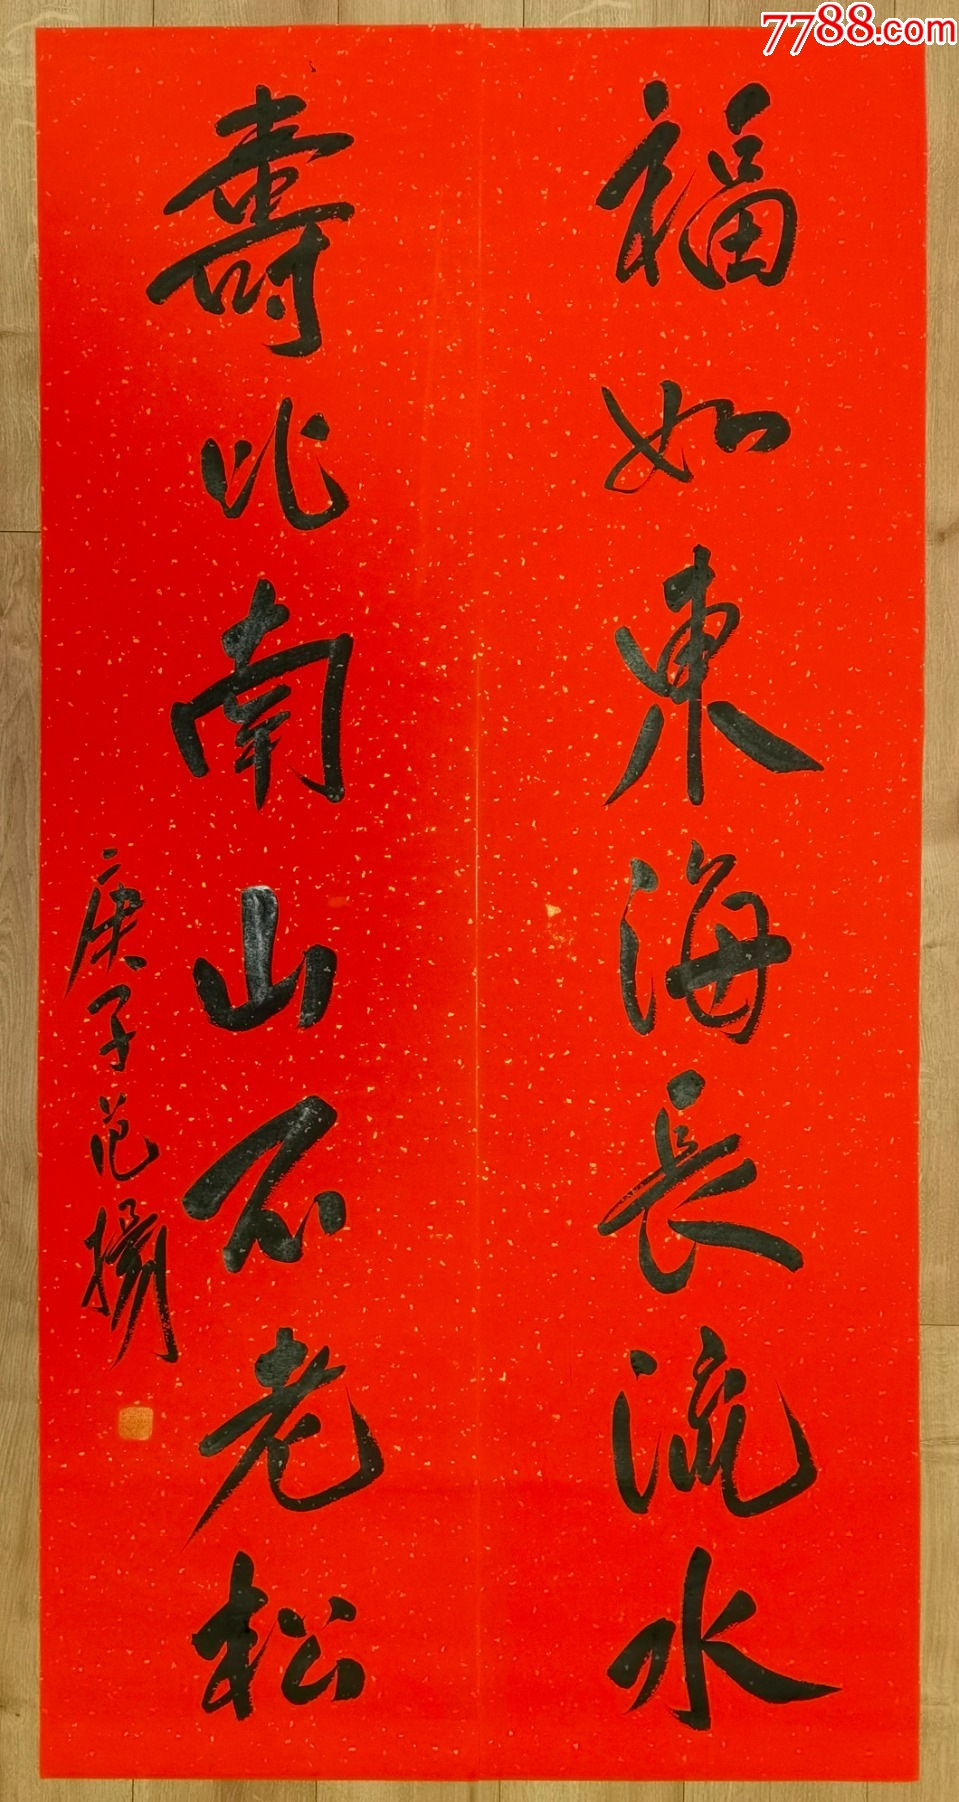 7788.com
福如東海長流水
壽比南山不老松
庚子范揚